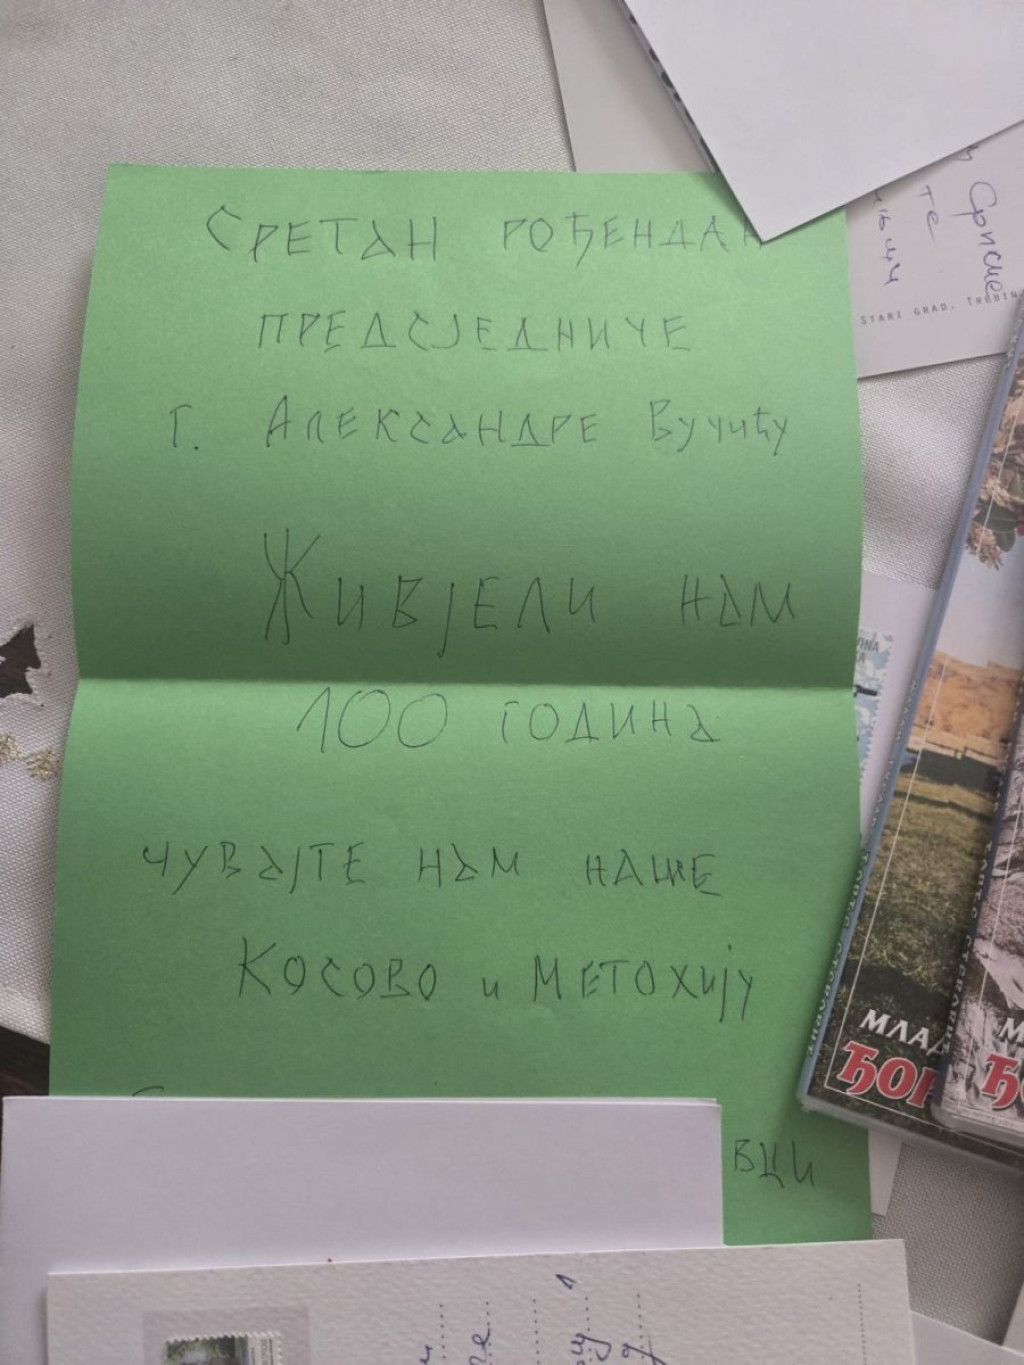 СРЕТАН РОЂЕНДАН
ПРЕДСЈЕДНИЧЕ
Г. АЛЕКСАНДРЕ Вучићу
ЖИВЈЕЛИ НАМ
100 ГОДИНА
ЧУВАЈТЕ НАМ НАШЕ
КОСОВО и МЕТОХИЈУ
ВЦИ
Српске
те
STARI GRAD, TREBIN
МЛАД
ЂОР
М
Ђ